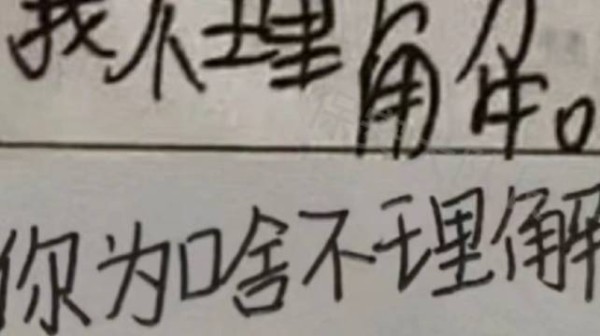 我不理解。
你为啥不理解